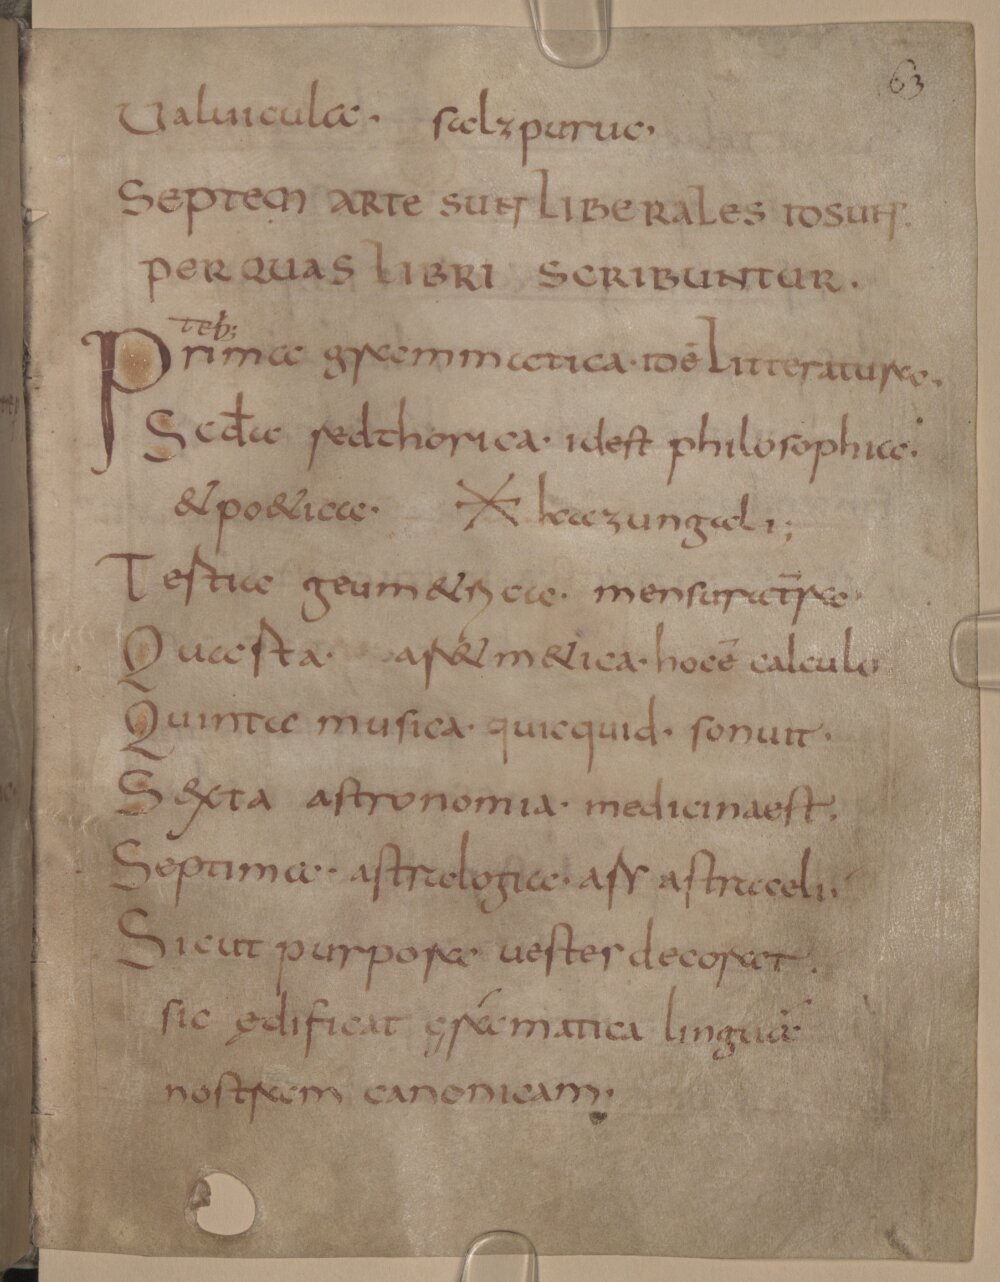 63
Ualuicula. salzpuruc.
SEPTEM ARTE SUNT LIBERALES IDSUNT.
PER QUAS LIBRI SCRIBUNTUR.
teb;
Prima grammatica. id ē litteratura.
Scđa redthorica. idest philosophia.
& po&ica. kazungali;
Testia geum&rica. mensura
Quarta. ar&m&ica. hoc ē calculo
Quinta musica. quicquid. sonuit.
Sexta astronomia. medicina est.
Septima. astrologia. astr astra celi.
Sicut purpora uestes decorat.
sic ędificat gramatica linguā
nostram canonicam.